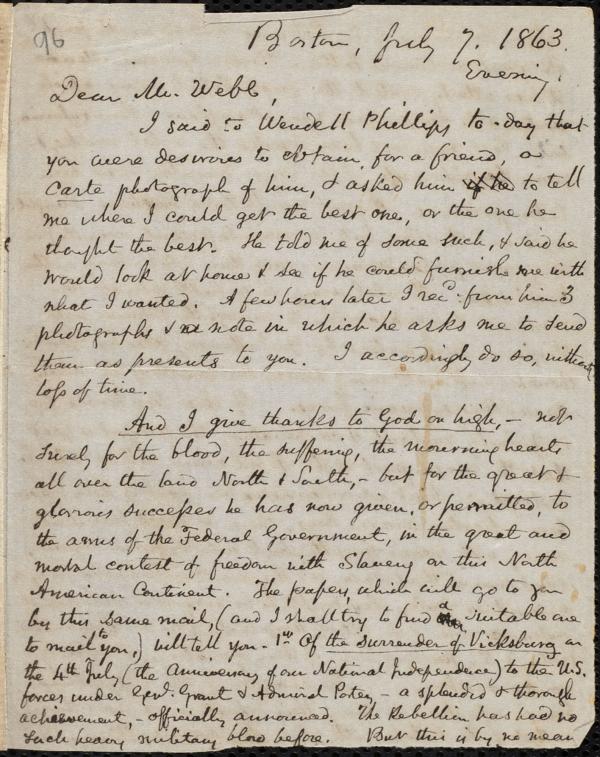 96
Boston, July 7. 1863.
Evening.
Dear Mr. Webb,
I said to Wendell Phillips to-day that
you were desirous to obtain, for a friend, a
carte photograph of him, & asked him if he to tell
me where I could get the best one, or the one he
thought the best. He told me of some such, & said he
would look at home & see if he could furnish me with
what I wanted. A few hours later I recd. from him 3
photographs & note in which he asks me to send
them as presents to you. I accordingly do so, without
loss of time.
And I give thanks to God on high, - not
surely for the blood, the suffering, the mourning hearts
all over the land North & South, - but for the great &
glorious successes he has now given, or permitted, to
the arms of the Federal Government, in the great and
mortal contest of freedom with Slavery on this North
American Continent. The papers, which will go to you
by this same mail, (and I shall try to find a suitable one
to mail to you,) will tell you - 1st Of the surrender of Vicksburg on
the 4th July (the Anniversary of our National Independence) to the U.S.
forces under Genl. Grant & Admiral Porter - a splendid & thorough
achievement, - officially announced. The Rebellion has had no
such heavy military blow before. But this is by no mean